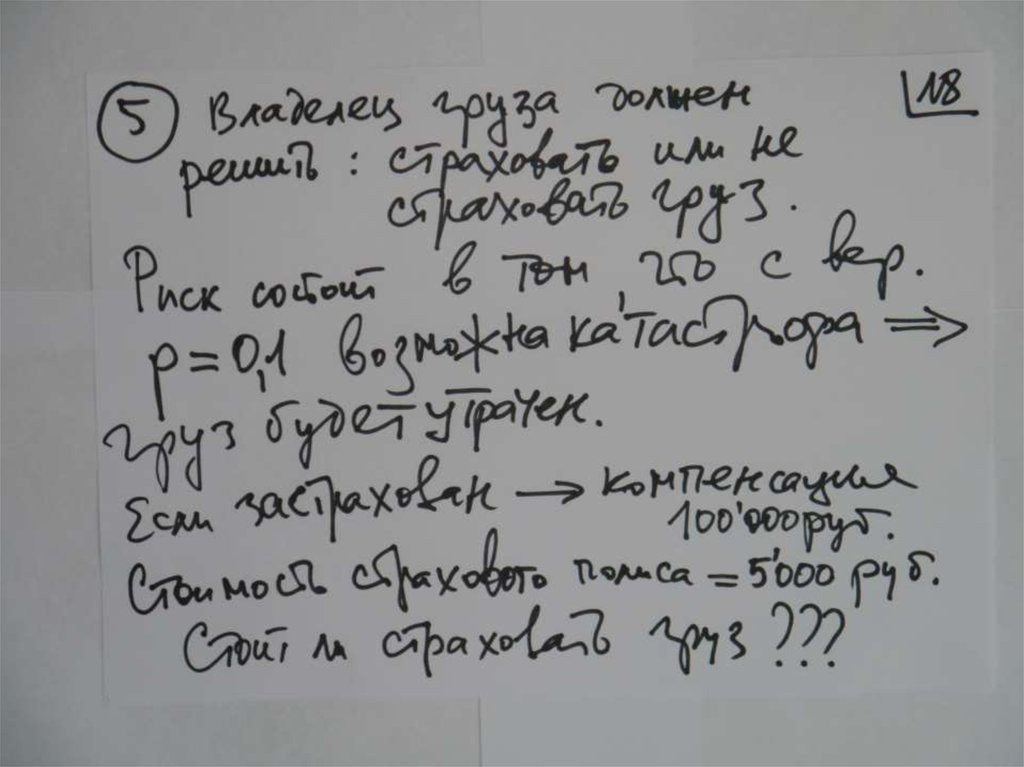 5 Владелец груза должен
N8
решить : страховать или не
страховать груз.
Риск состоит в том, что с вер.
p = 0,1 возможна катастрофа ⇒
груз будет утрачен.
Если застрахован → компенсация
100'000 руб.
Стоимость страхового полиса = 5'000 руб.
Стоит ли страховать груз ???